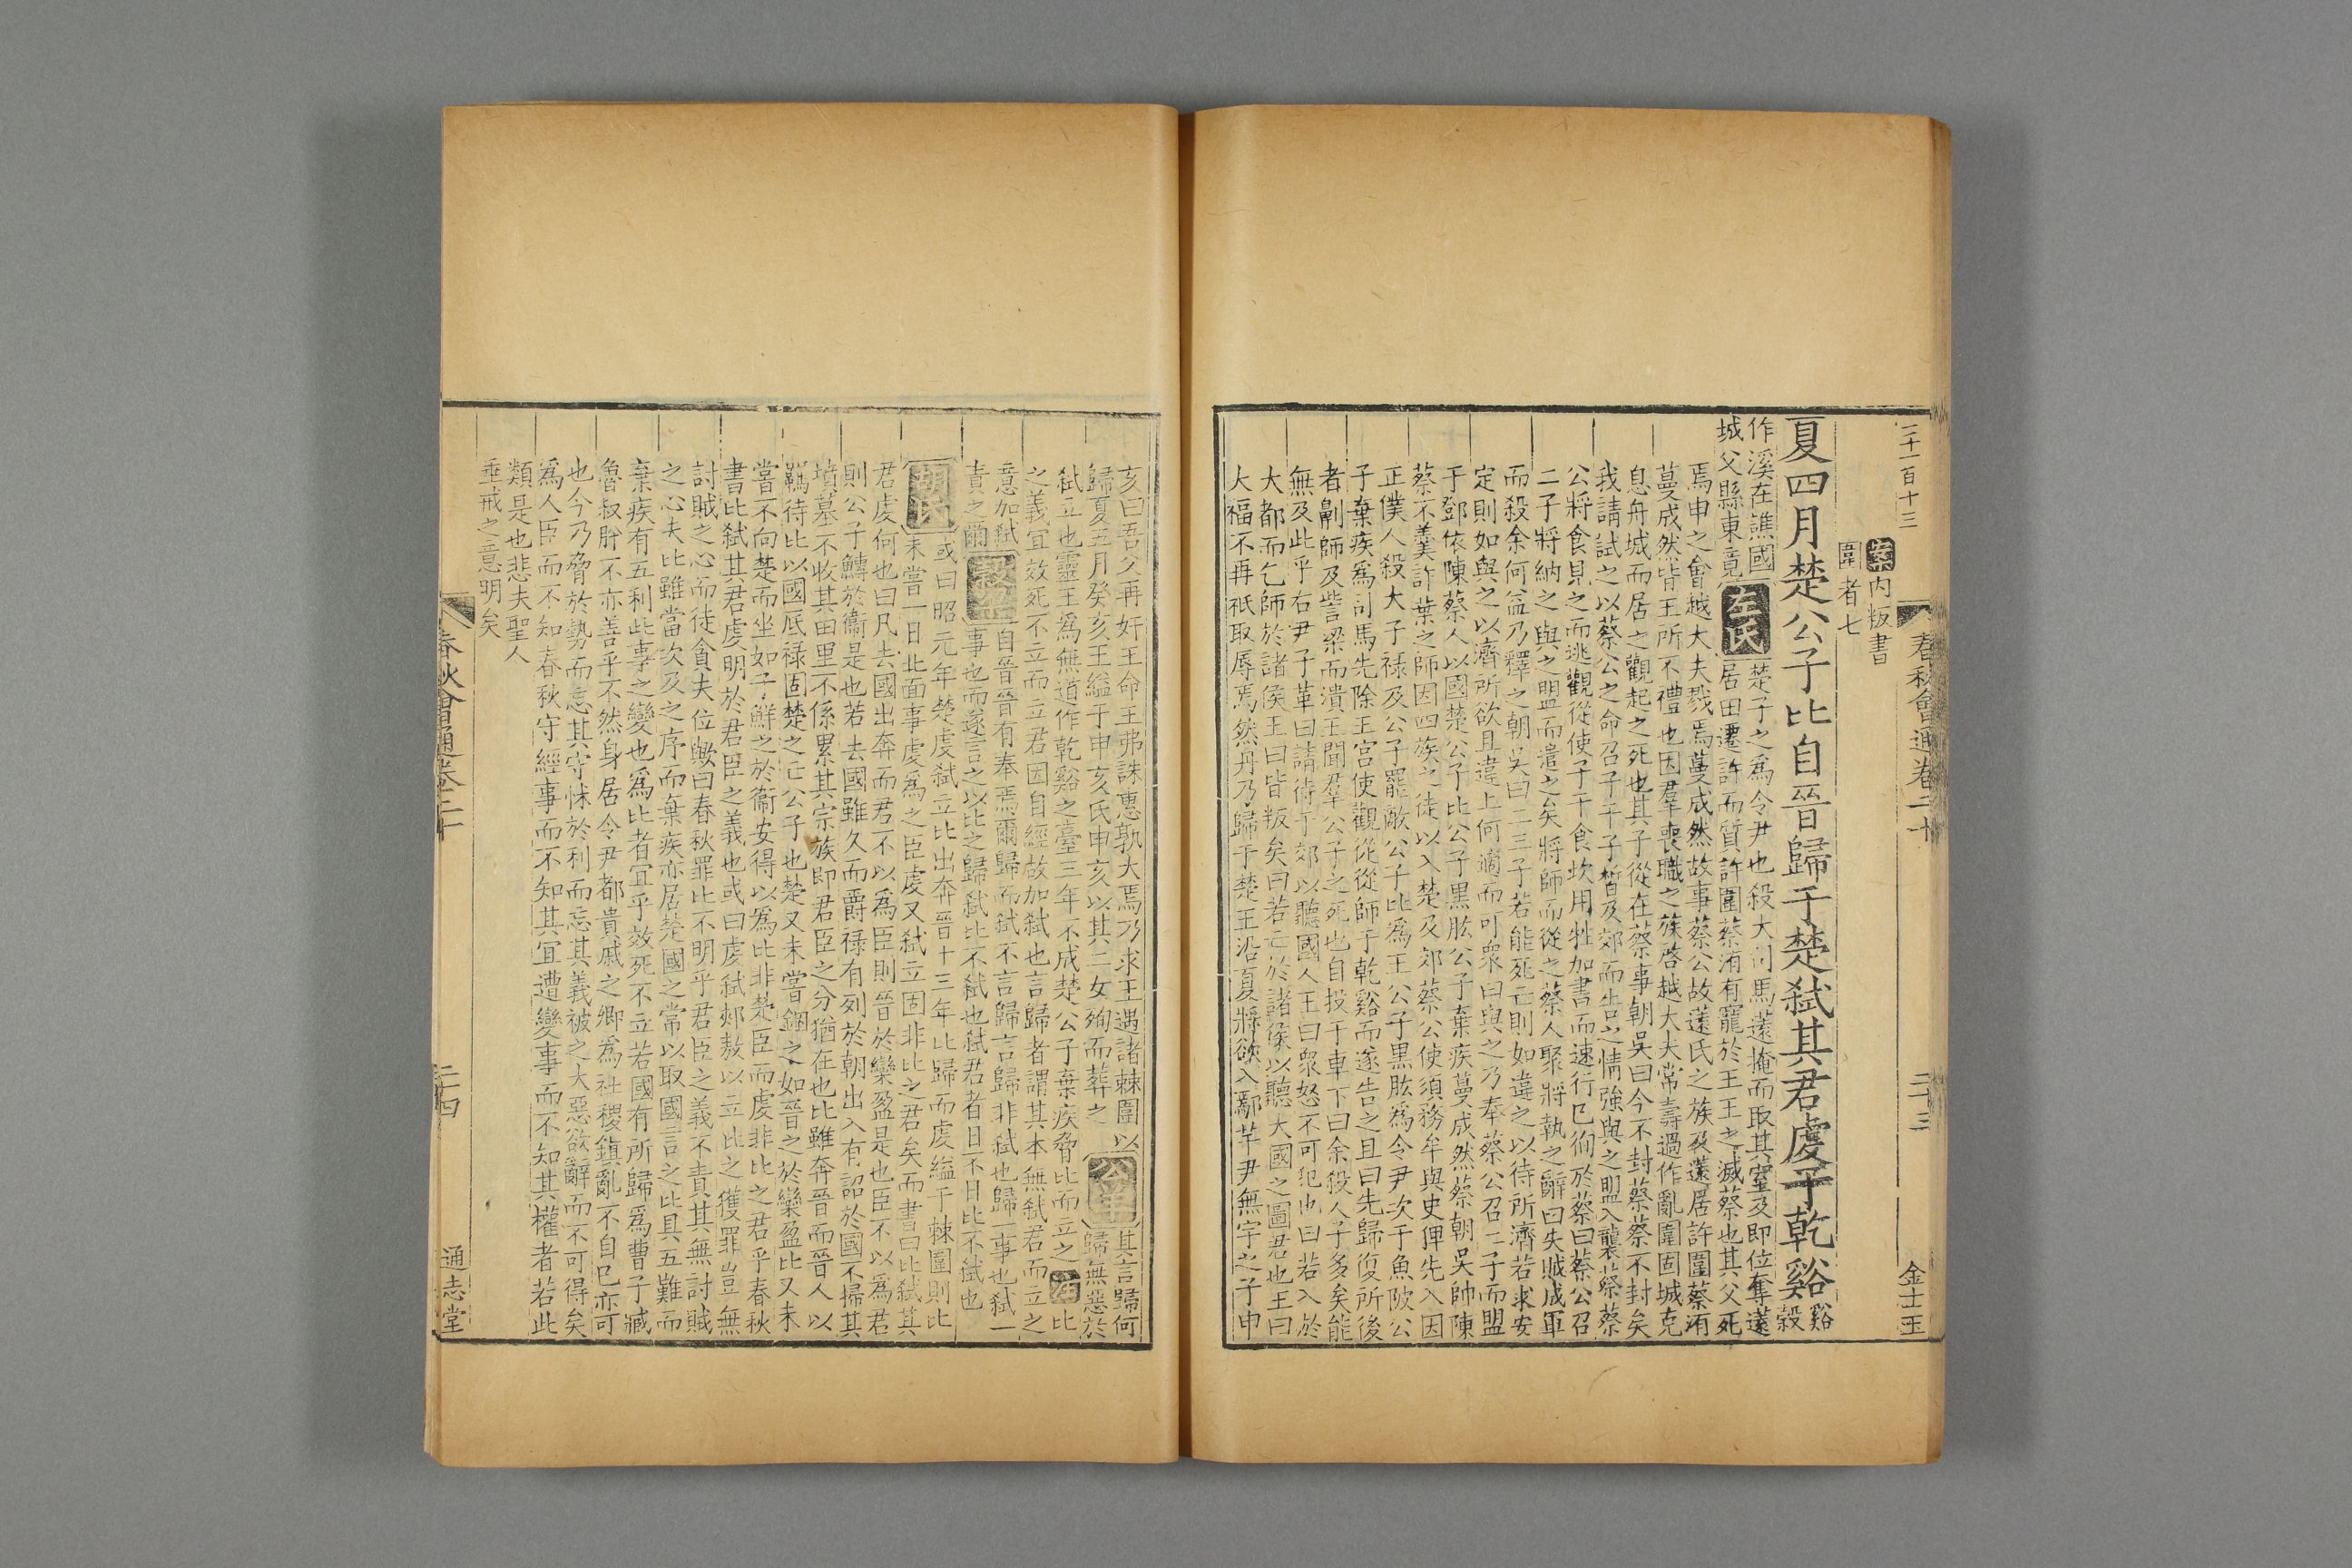 二千一百十三
春秋會通卷二十
二十三
金士玉
案內版書
圍者七
夏四月楚公子比自晉歸于楚弑其君虔于乾谿
谿
穀
作溪在譙國
城父縣東竟
左氏
楚子之爲令尹也殺大司馬薳掩而取其室及即位奪薳
居田遷許而質許圍蔡洧有寵於王王之滅蔡也其父死
焉申之會越大夫戮焉蔓成然故事蔡公故薳氏之族及薳居許圍蔡洧
蔓成然皆王所不禮也因羣喪職之族啓越大夫常壽過作亂圍固城克
息舟城而居之觀起之死也其子從在蔡事朝吳曰今不封蔡蔡不封矣
我請試之以蔡公之命召子干子皙及郊而告之情強與之盟入襲蔡蔡
公將食見之而逃觀從使子干食坎用牲加書而速行已徇於蔡曰蔡公召
二子將納之與之盟而遣之矣將師而從之蔡人聚將執之辭曰失賊成軍
而殺余何益乃釋之朝吳曰二三子若能死亡則如違之以待所濟若求安
定則如與之以濟所欲且違上何適而可衆曰與之乃奉蔡公召二子而盟
于鄧依陳蔡人以國楚公子比公子黑肱公子棄疾蔓成然蔡朝吳帥陳
蔡不羹許葉之師因四族之徒以入楚及郊蔡公使須務牟與史猈先入因
正僕人殺大子祿及公子罷敵公子比爲王公子黑肱爲令尹次于魚陂公
子棄疾爲司馬先除王宮使觀從從師于乾谿而遂告之且曰先歸復所後
者劓師及訾梁而潰王聞羣公子之死也自投于車下曰余殺人子多矣能
無及此乎右尹子革曰請待于郊以聽國人王曰衆怒不可犯也曰若入於
大都而乞師於諸侯王曰皆叛矣曰若亡於諸侯以聽大國之圖君也王曰
大福不再祇取辱焉然丹乃歸于楚王沿夏將欲入鄢芋尹無宇之子申
亥曰吾父再奸王命王弗誅惠孰大焉乃求王遇諸棘圍以
歸夏五月癸亥王縊于申亥氏申亥以其二女殉而葬之
公羊
其言歸何
歸無惡於
弑立也靈王爲無道作乾谿之臺三年不成楚公子棄疾脅比而立之
左
比
之義宜效死不立而立君因自經故加弑也言歸者謂其本無弑君而立之
意加弑
責之爾
穀梁
自晉晉有奉焉爾歸而弑不言歸言歸非弑也歸一事也弑一
事也而遂言之以比之歸弑比不弑也弑君者日不日比不弑也
胡氏
或曰昭元年楚虔弑立比出奔晉十三年比歸而虔縊于棘圍則比
未嘗一日北面事虔爲之臣虔又弑立固非比之君矣而書曰比弑其
君虔何也曰凡去國出奔而君不以爲臣則晉於欒盈是也臣不以爲君
則公子鱄於衞是也若去國雖久而爵祿有列於朝出入有詔於國不掃其
墳墓不收其田里不係累其宗族即君臣之分猶在也比雖奔晉而晉人以
羈待比以國厎祿固楚之亡公子也楚又未嘗錮之如晉之於欒盈比又未
嘗不向楚而坐如子鮮之於衞安得以爲比非楚臣而虔非比之君乎春秋
書比弑其君虔明於君臣之義也或曰虔弑郟敖以立比之獲罪豈無
討賊之心而徒貪夫位歟曰春秋罪比不明乎君臣之義不責其無討賊
之心夫比雖當次及之序而棄疾亦居楚國之常以取國言之比具五難而
棄疾有五利此事之變也爲比者宜乎效死不立若國有所歸爲曹子臧
魯叔肸不亦善乎不然身居令尹都貴戚之卿爲社稷鎮亂不自已亦可
也今乃脅於勢而忘其守怵於利而忘其義被之大惡欲辭而不可得矣
爲人臣而不知春秋守經事而不知其宜遭變事而不知其權者若此
類是也悲夫聖人
垂戒之意明矣
春秋會通卷二十
二十四
通志堂